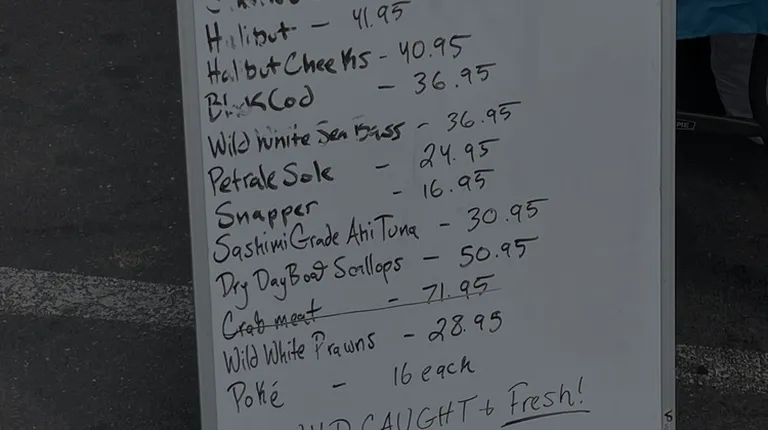 Halibut - 41.95
Halibut Cheeks - 40.95
Black Cod - 36.95
Wild White Sea Bass - 36.95
Petrale Sole - 24.95
Snapper - 16.95
Sashimi Grade Ahi Tuna - 30.95
Dry Day Boat Scallops - 50.95
Crab meat - 71.95
Wild White Prawns - 28.95
Poké - 16 each
CAUGHT + Fresh!